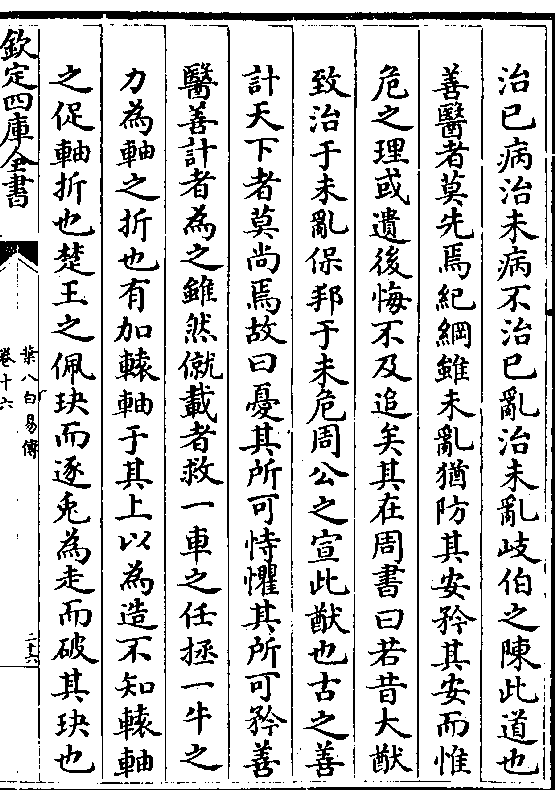 治已病治未病不治已亂治未亂岐伯之陳此道也
善醫者莫先焉紀綱雖未亂猶防其安矜其安而惟
危之理或遺後悔不及追矣其在周書曰若昔大猷
致治于未亂保邦于未危周公之宣此猷也古之善
計天下者莫尚焉故曰憂其所可恃懼其所可矜善
醫善計者為之雖然僦載者救一車之任拯一牛之
力為軸之折也有加轅軸于其上以為造不知轅軸
之促軸折也楚王之佩玦而逐兎為走而破其玦也
欽定四庫全書
葉八白易傳
卷十六
二十六